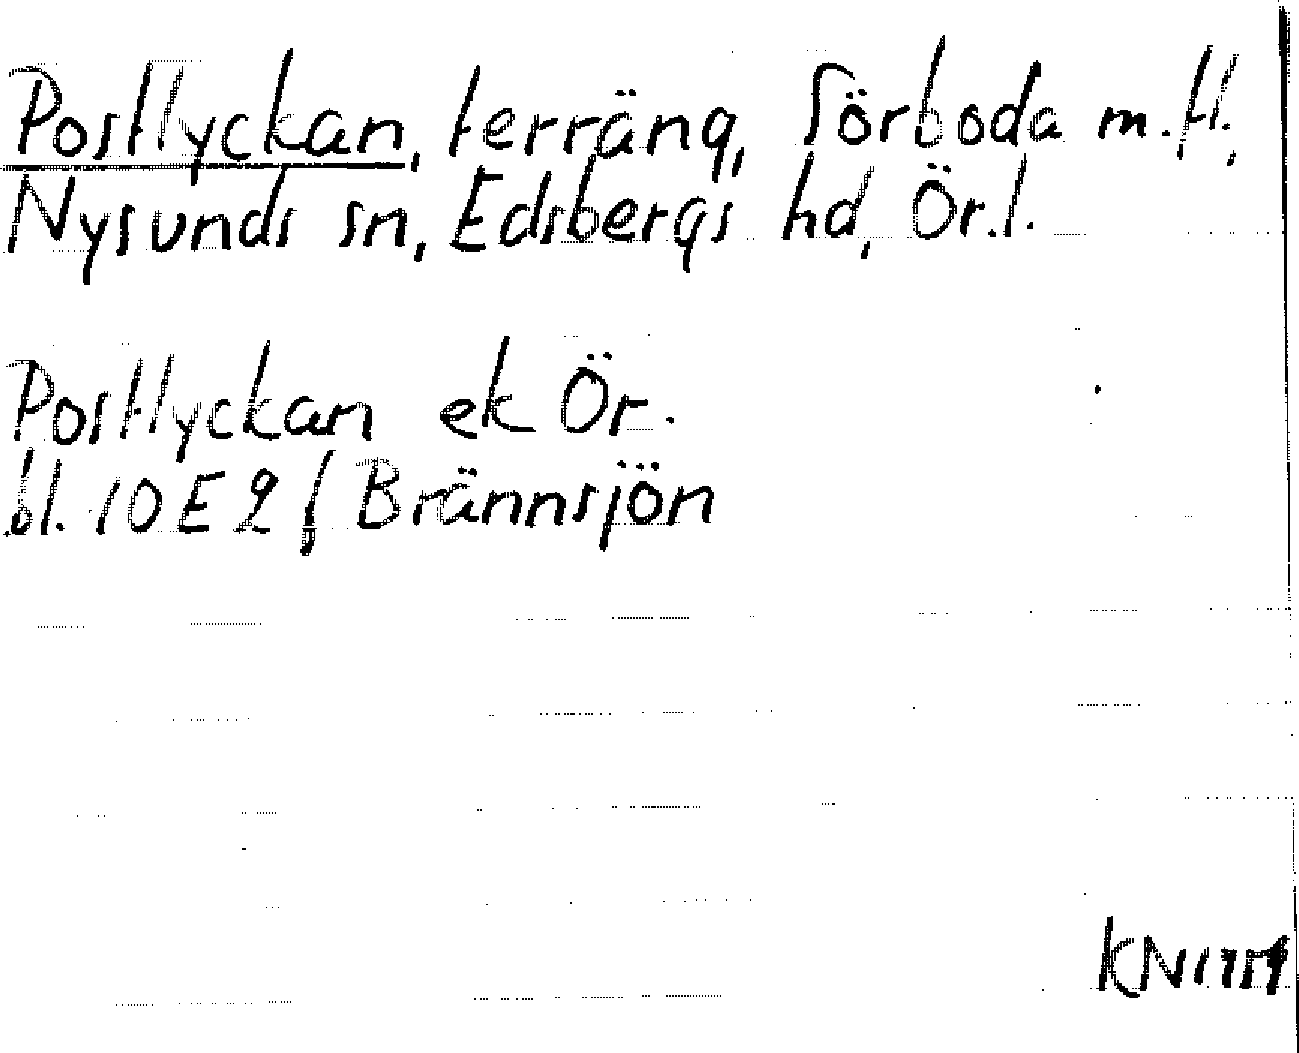 Postlyckan, terräng, Sörboda m.fl.,
Nysunds sn, Edsbergs hd, Ör.l.
Postlyckan ek Ör.
bl. 10E2f Brännsjön